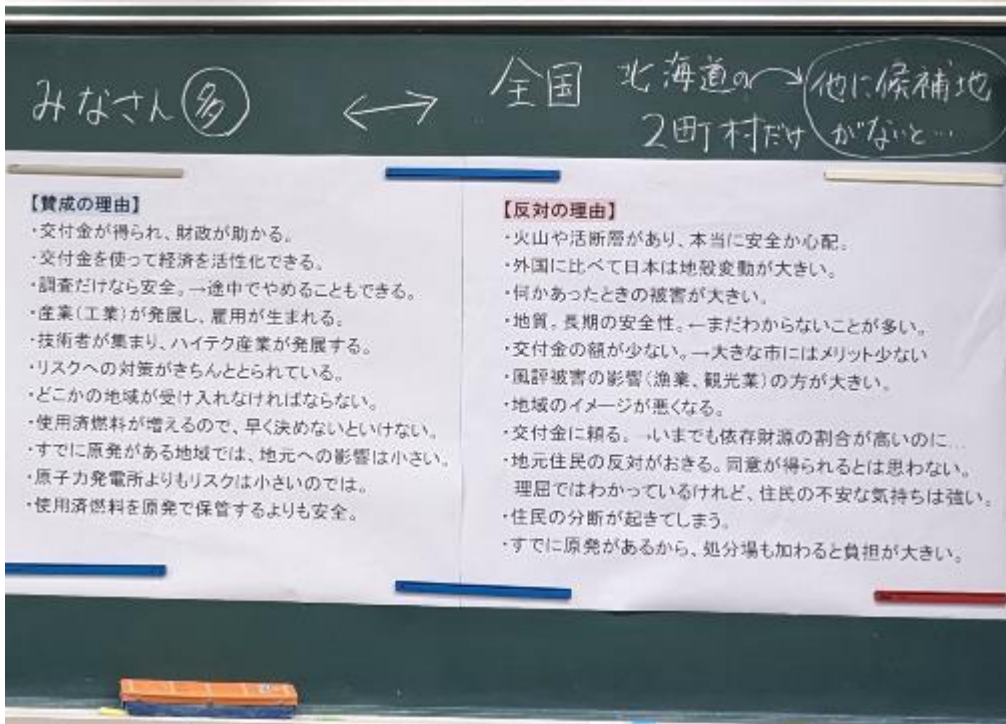 みなさん 多 ⟷ 全国 北海道の→他に候補地
2町村だけ がないと…
【賛成の理由】
・交付金が得られ、財政が助かる。
・交付金を使って経済を活性化できる。
・調査だけなら安全。→途中でやめることもできる。
・産業(工業)が発展し、雇用が生まれる。
・技術者が集まり、ハイテク産業が発展する。
・リスクへの対策がきちんととられている。
・どこかの地域が受け入れなければならない。
・使用済燃料が増えるので、早く決めないといけない。
・すでに原発がある地域では、地元への影響は小さい。
・原子力発電所よりもリスクは小さいのでは。
・使用済燃料を原発で保管するよりも安全。
【反対の理由】
・火山や活断層があり、本当に安全か心配。
・外国に比べて日本は地殻変動が大きい。
・何かあったときの被害が大きい。
・地質。長期の安全性。←まだわからないことが多い。
・交付金の額が少ない。→大きな市にはメリット少ない
・風評被害の影響(漁業、観光業)の方が大きい。
・地域のイメージが悪くなる。
・交付金に頼る。→いまでも依存財源の割合が高いのに…
・地元住民の反対がおきる。同意が得られるとは思わない。
理屈ではわかっているけれど、住民の不安な気持ちは強い。
・住民の分断が起きてしまう。
・すでに原発があるから、処分場も加わると負担が大きい。